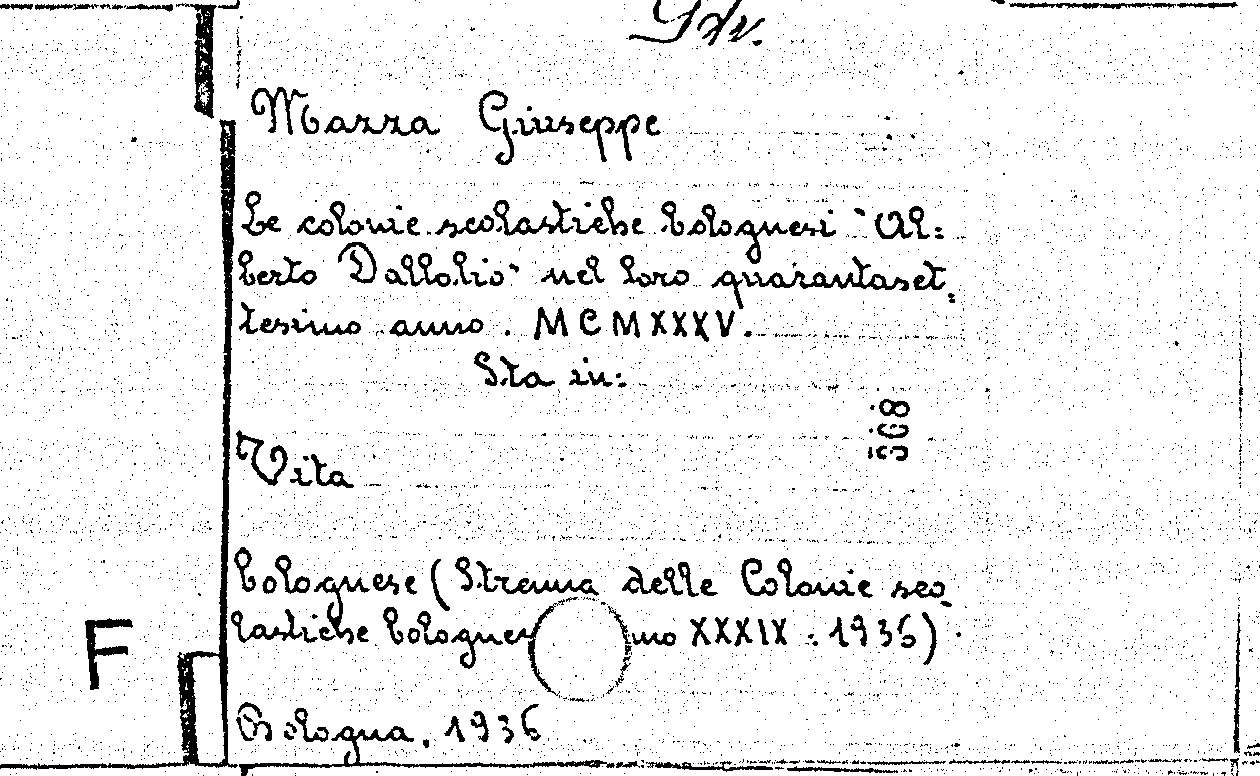 Mazza Giuseppe
Le colonie scolastiche bolognesi "Al=
berto Dallolio" nel loro quarantaset=
tesimo anno. MCMXXXV.
Sta in:
368
Vita
bolognese (Strenna delle Colonie sco-
lastiche bolognes no XXXIX : 1936).
F
Bologna, 1936